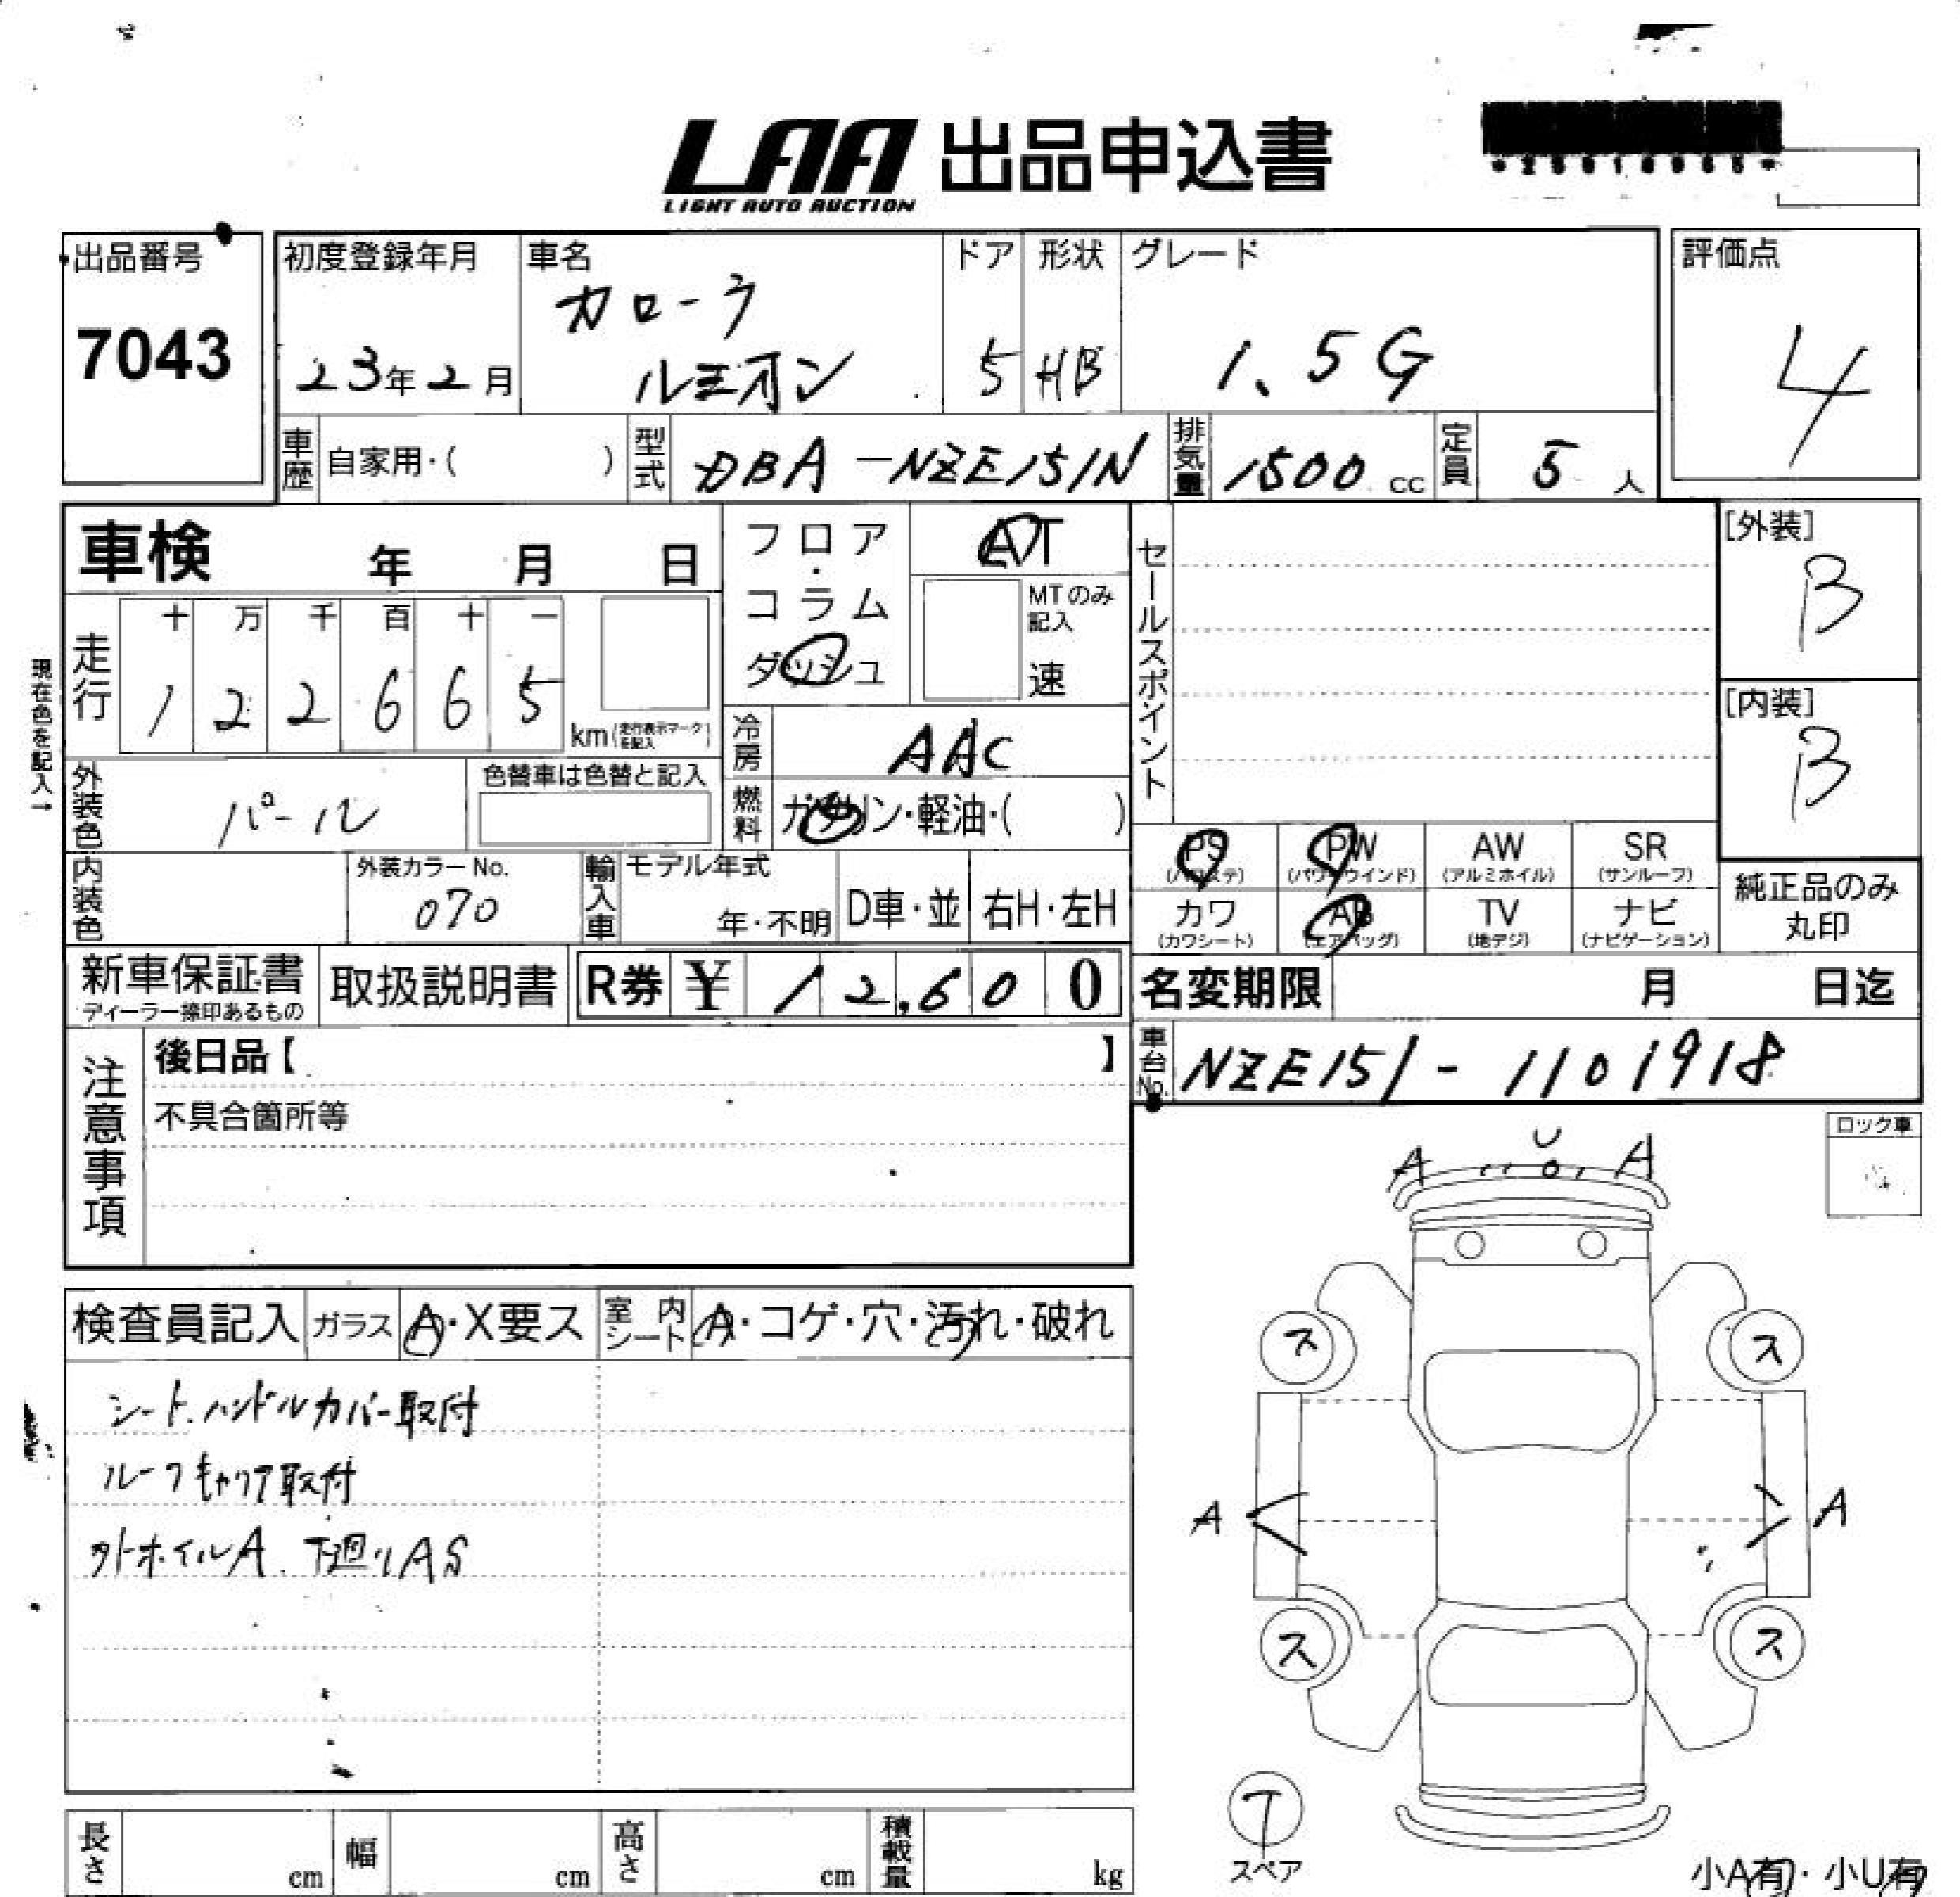 LAA 出品申込書
LIGHT AUTO AUCTION
出品番号
7043
初度登録年月
23年2月
車名
カローラ
ルミオン
ドア
5
形状
HB
グレード
1.5G
評価点
4
車歴 自家用・( )
型式 DBA-NZE151N
排気量 1500 cc
定員 5 人
車検 年 月 日
走行
十 万 千 百 十 一
1 2 2 6 6 5
km(走行表示マークを記入)
現在色を記入→
フロア・コラム
ダッシュ
AT
MTのみ記入
速
セールスポイント
[外装]
B
[内装]
B
外装色 パール
色替車は色替と記入
冷房 AAC
燃料 ガソリン・軽油・( )
内装色
外装カラーNo.
070
輸入車
モデル年式
年・不明
D車・並
右H・左H
PS (パワステ)
PW (パワーウインド)
AW (アルミホイル)
SR (サンルーフ)
カワ (カワシート)
AB (エアバッグ)
TV (地デジ)
ナビ (ナビゲーション)
純正品のみ
丸印
新車保証書
ディーラー捺印あるもの
取扱説明書
R券 ¥ 12,600
名変期限 月 日迄
注意事項
後日品【 】
不具合箇所等
車台No. NZE151-1101918
ロック車
検査員記入
ガラス A・X要ス
室内シート A・コゲ・穴・汚れ・破れ
シート、ハンドルカバー取付
ルーフキャリア取付
外ホイルA、下廻りAS
A U A
ス ス
A A
ス ス
T
スペア
小A有・小U有
長さ cm
幅 cm
高さ cm
積載量 kg